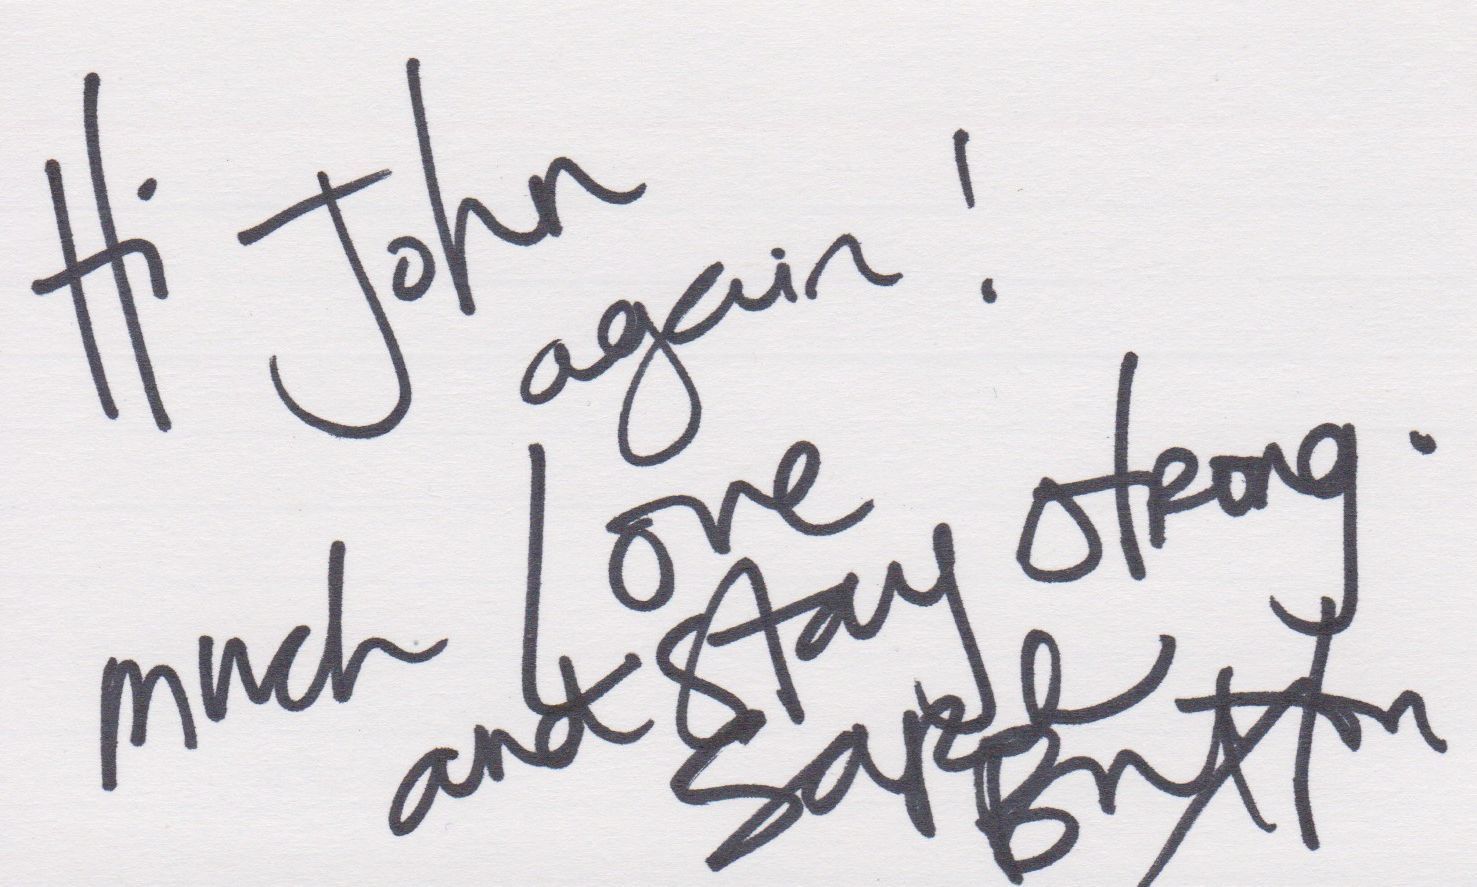 Hi John
again!
much Love
and Stay Strong.
Sarah
Britton